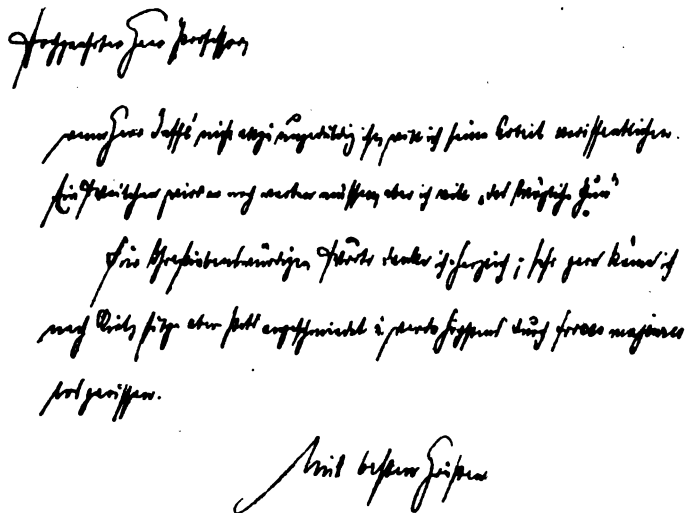 Hochgeehrter Herr Professor
wenn Herr nicht allzu ungeduldig ist, will ich seine Arbeit veröffentlichen.
Ein Weilchen wird er noch warten müssen, aber ich will „das Mögliche thun“
Für Ihre liebenswürdigen Worte danke ich herzlich; sehr gern käme ich
nach sitze aber stets angeschmiedet & werde höchstens durch forces majeures
los gerissen.
Mit besten Grüßen